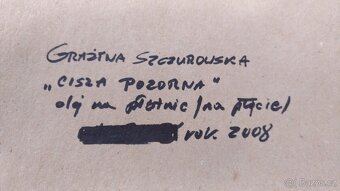 GRAŻYNA SZCZUROWSKA
„CISZA POZORNA"
olej na płótnie /na płycie/
rok. 2008